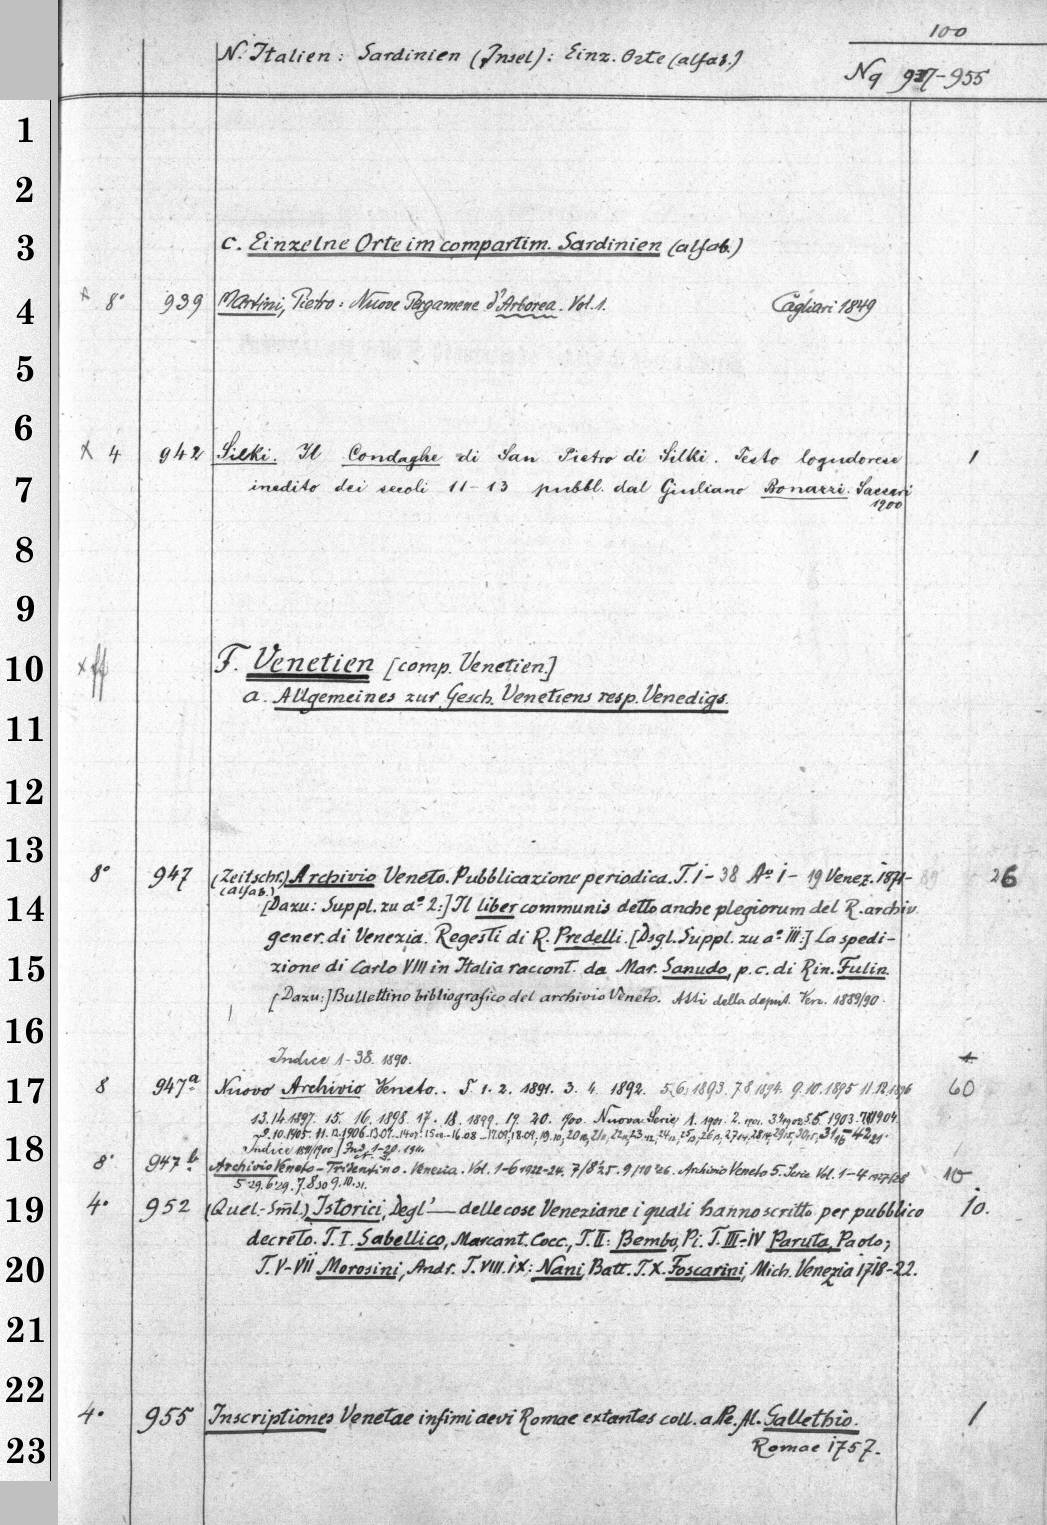 100
N. Italien: Sardinien (Insel): Einz. Orte (alfab.)
Nq 937-955
1
2
3 c. Einzelne Orte im compartim. Sardinien (alfab.)
4 8° 939 Martini, Pietro: Nuove Pergamene d'Arborea. Vol. 1. Cagliari 1849
5
6
x 4 942 Silki. Il Condaghe di San Pietro di Silki. Testo logudorese 1
7 inedito dei secoli 11-13 pubbl. dal Giuliano Bonazzi. Sassari
1900
8
9
10 F. Venetien [comp. Venetien.]
a. Allgemeines zur Gesch. Venetiens resp. Venedigs.
11
12
13
8° 947 (Zeitschr.) Archivio Veneto. Pubblicazione periodica. T. I-38 A° I- 19 Venez. 1871-89 26
(alfab.)
14 [Dazu: Suppl. zu a° 2:] Il liber communis detto anche plegiorum del R. archiv.
gener. di Venezia. Regesti di R. Predelli. [Dsgl. Suppl. zu a° III:] La spedi-
15 zione di Carlo VIII in Italia raccont. da Mar. Sanudo, p. c. di Rin. Fulin.
[Dazu:] Bullettino bibliografico del archivio Veneto. Atti della deput. Ven. 1889/90.
16
Indice 1-38. 1890.
17 8 947a Nuovo Archivio Veneto.. T. 1. 2. 1891. 3. 4. 1892. 5.6. 1893. 7 8 1894. 9. 10. 1895 11.12. 1896 60
13. 14. 1897. 15. 16. 1898. 17. 18. 1899. 19. 20. 1900. Nuova Serie, 1. 1901. 2. 1901. 3 4 1902 5.6. 1903. 7.8. 1904.
9. 10. 1905. 11. 12. 1906.
18 Indice 1891/1900
8° 947b Archivio Veneto-Tridentino. Venezia. Vol. 1-6 1922-24. 7/8 '25. 9/10 '26. Archivio Veneto 5. Serie Vol. 1-4 1927/28 10
19 4° 952 (Quel.-Sml.) Istorici, Degl' — delle cose Veneziane i quali hanno scritto per pubblico 10.
decreto. T. I. Sabellico, Marcant. Cocc., T. II: Bembo, Pi. T. III-IV Paruta, Paolo;
20 T. V-VII Morosini, Andr. T. VIII. IX: Nani, Batt. T. X. Foscarini, Mich. Venezia 1718-22.
21
22
4° 955 Inscriptiones Venetae infimi aevi Romae extantes coll. a Pe. Al. Gallethio. 1
23 Romae 1757.